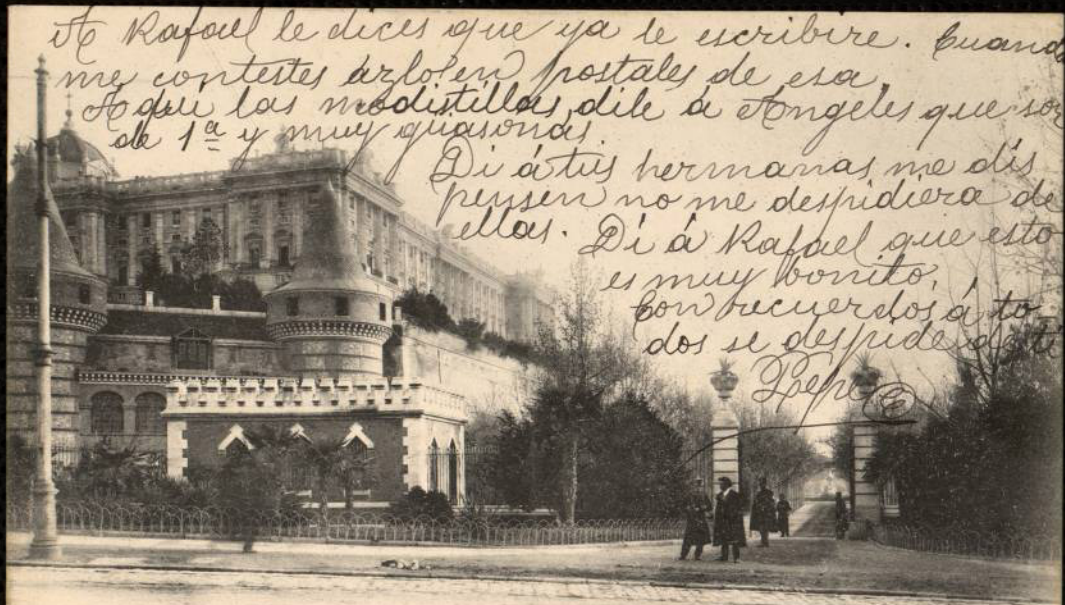 A Rafael le dices que ya le escribire. Cuando
me contestes ázlo en postales de esa,
Aqui las modistillas, dile á Angeles que son
de 1ª y muy guasonas
Di á tus hermanas me dis
pensen no me despidiera de
ellas. Di á Rafael que esto
es muy bonito,
Con recuerdos á to
dos se despide de ti
Pepe